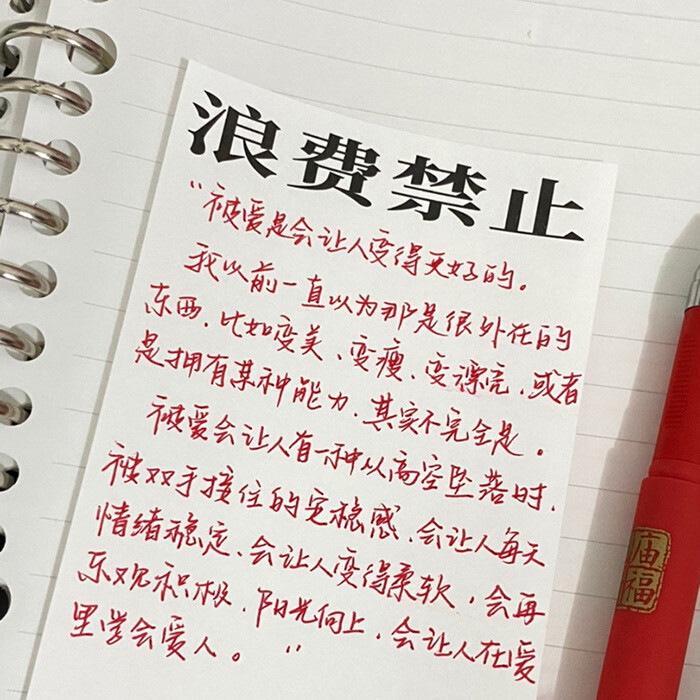 浪费禁止
“被爱是会让人变得更好的。
我以前一直以为那是很外在的
东西，比如变美、变瘦、变漂亮，或者
是拥有某种能力，其实不完全是。
被爱会让人有一种从高空坠落时，
被双手接住的安稳感，会让人每天
情绪稳定、会让人变得柔软，会再
乐观积极，阳光向上，会让人在爱
里学会爱人。”
庙福